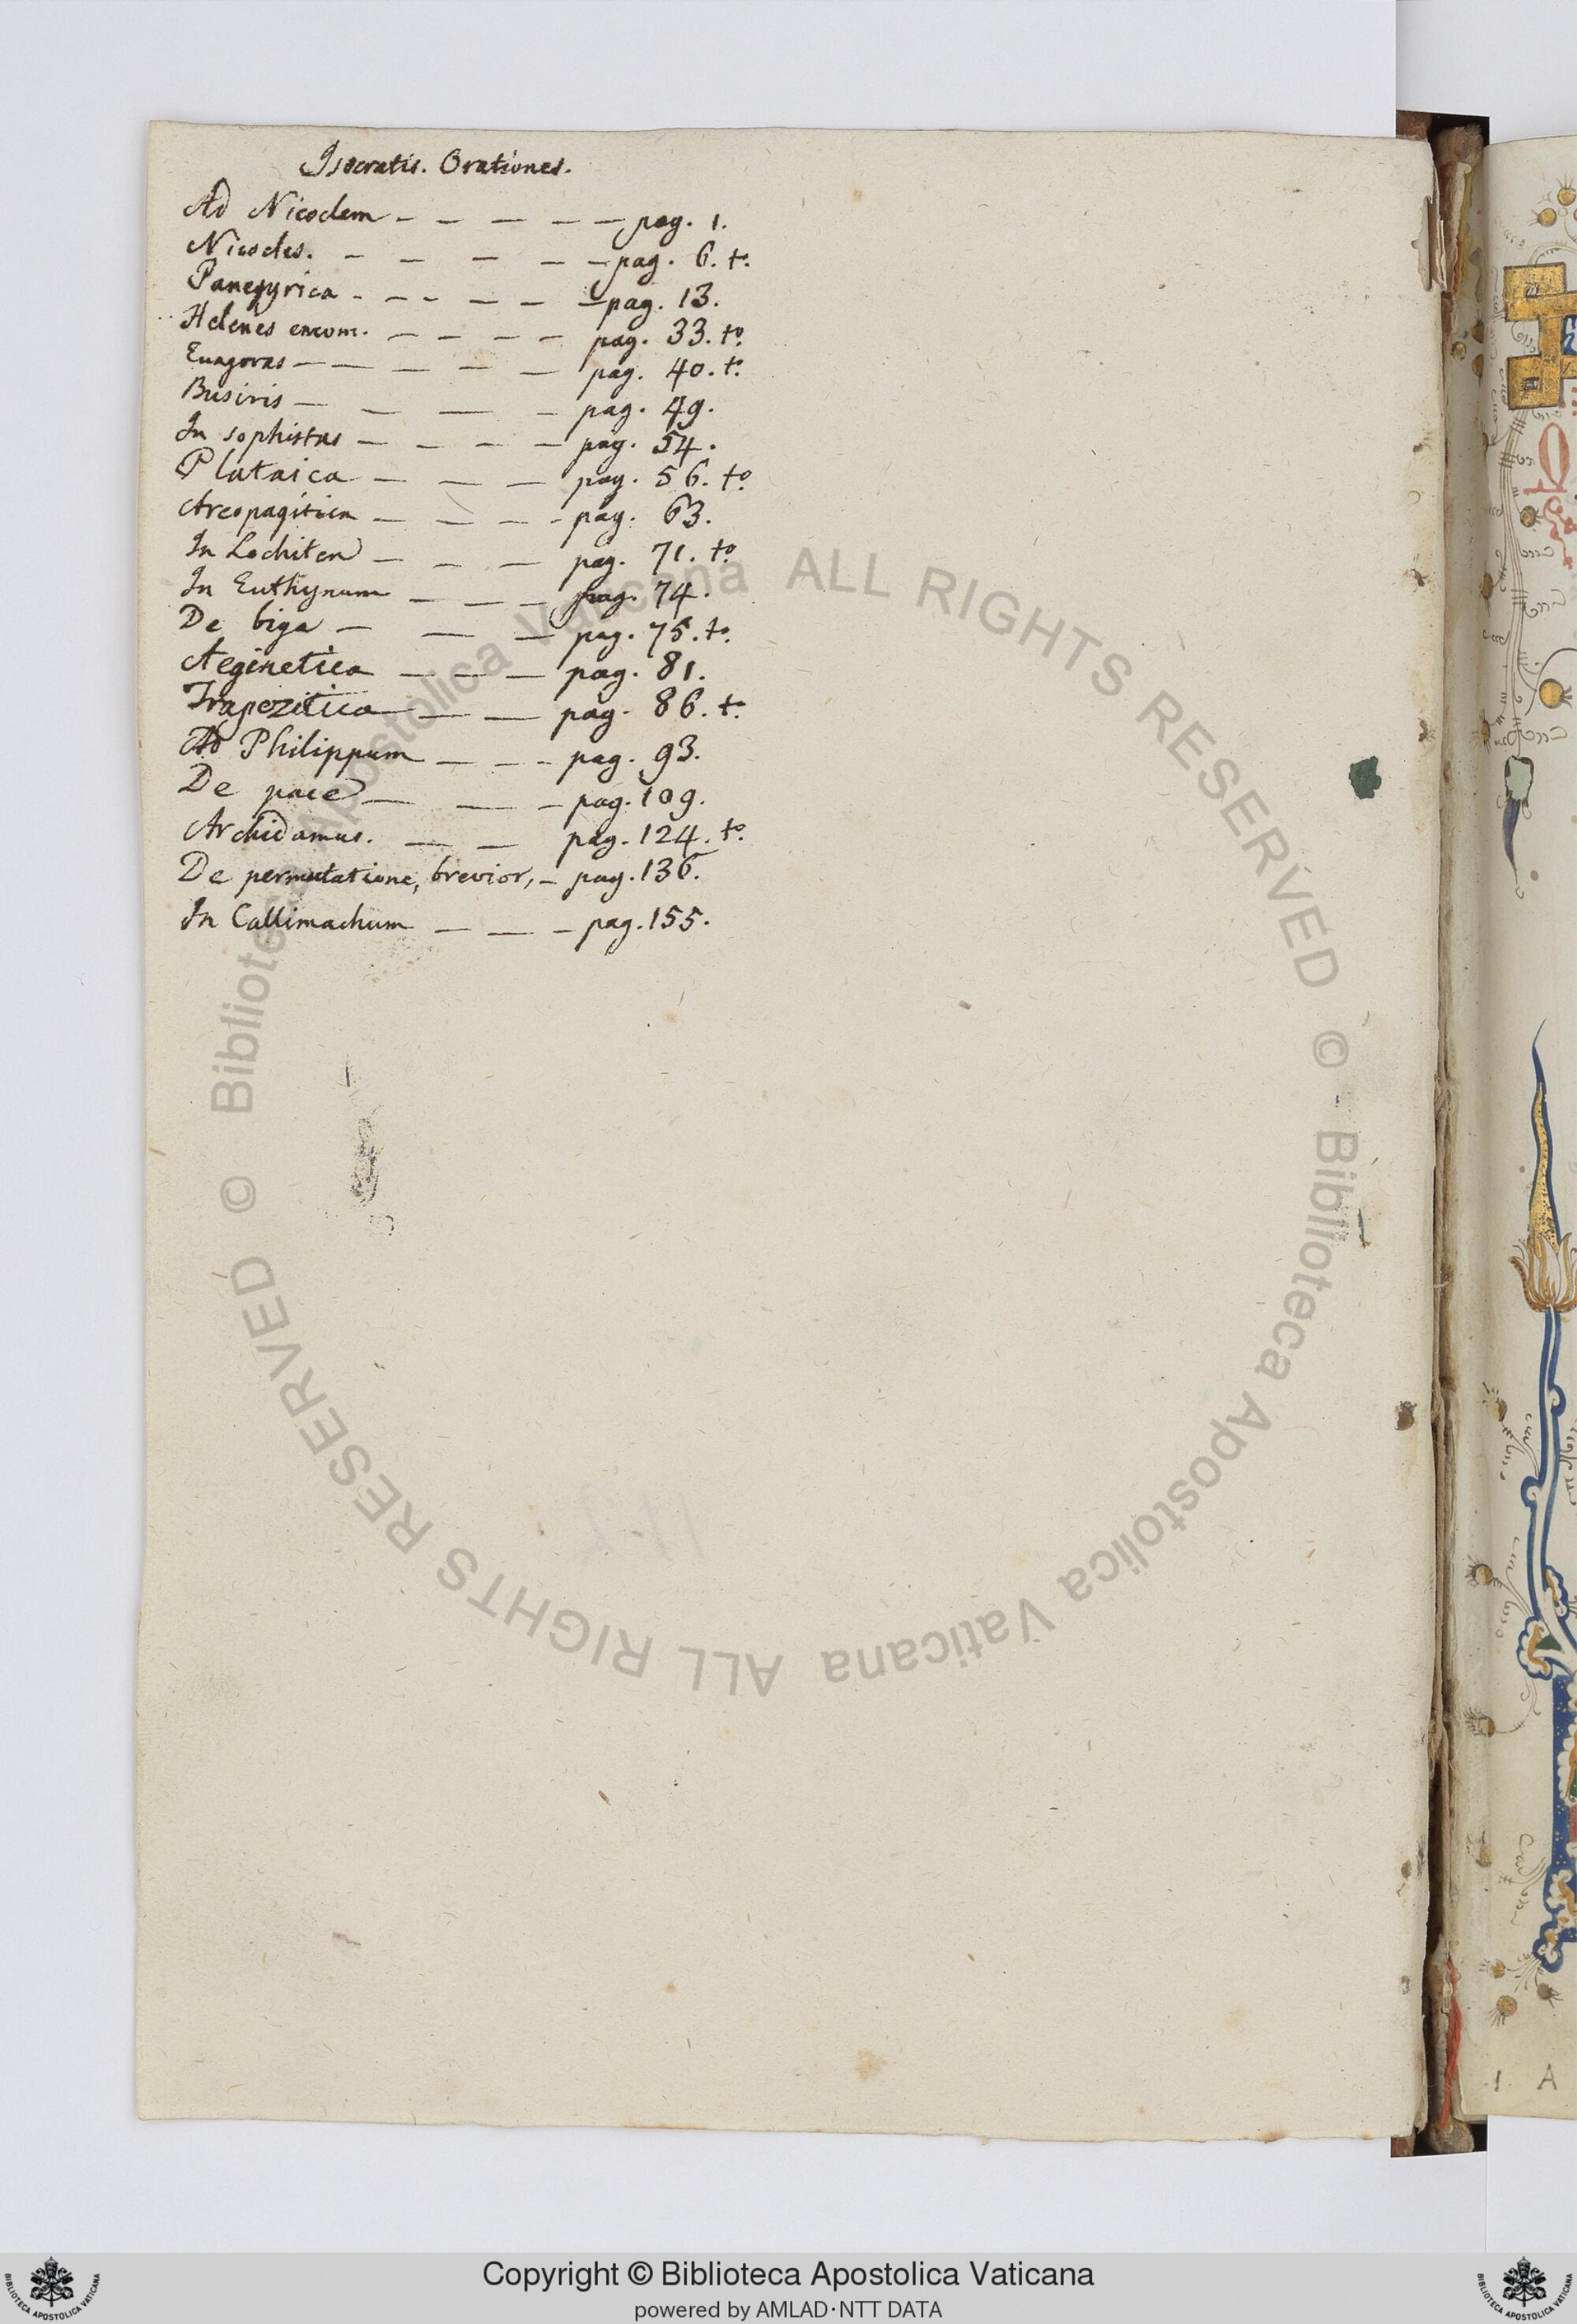 Isocratis. Orationes.
Ad Nicoclem - - - - - pag. 1.
Nicocles. - - - - - pag. 6. to.
Panegyrica - - - - - pag. 13.
Helenes encom. - - - - pag. 33. to.
Euagoras - - - - - pag. 40. to.
Busiris - - - - pag. 49.
In sophistas - - - - pag. 54.
Plataica - - - pag. 56. to.
Areopagitica - - - - pag. 63.
In Lochiten - - - pag. 71. to.
In Euthynum - - - pag. 74.
De biga - - - pag. 75. to.
Aeginetica - - - pag. 81.
Trapezitica - - pag. 86. to.
Ad Philippum - - - pag. 93.
De pace - - - pag. 109.
Archidamus. - - pag. 124. to.
De permutatione, brevior, - pag. 136.
In Callimachum - - - pag. 155.
1 A
© Biblioteca Apostolica Vaticana ALL RIGHTS RESERVED © Biblioteca Apostolica Vaticana ALL RIGHTS RESERVED
Copyright © Biblioteca Apostolica Vaticana
powered by AMLAD·NTT DATA
BIBLIOTECA APOSTOLICA VATICANA
BIBLIOTECA APOSTOLICA VATICANA